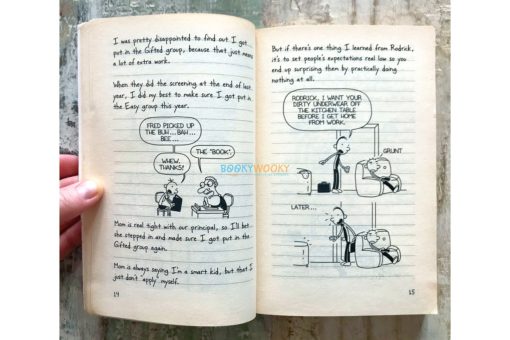 I was pretty disappointed to find out I got
put in the Gifted group, because that just means
a lot of extra work.
When they did the screening at the end of last
year, I did my best to make sure I got put in
the Easy group this year.
FRED PICKED UP
THE BUH... BAH...
BEE...
THE "BOOK".
WHEW.
THANKS!
Mom is real tight with our principal, so I'll bet
she stepped in and made sure I got put in the
Gifted group again.
Mom is always saying I'm a smart kid, but that I
just don't "apply" myself.
14
But if there's one thing I learned from Rodrick,
it's to set people's expectations real low so you
end up surprising them by practically doing
nothing at all.
RODRICK, I WANT YOUR
DIRTY UNDERWEAR OFF
THE KITCHEN TABLE
BEFORE I GET HOME
FROM WORK.
GRUNT.
LATER...
15
BOOKYWOOKY